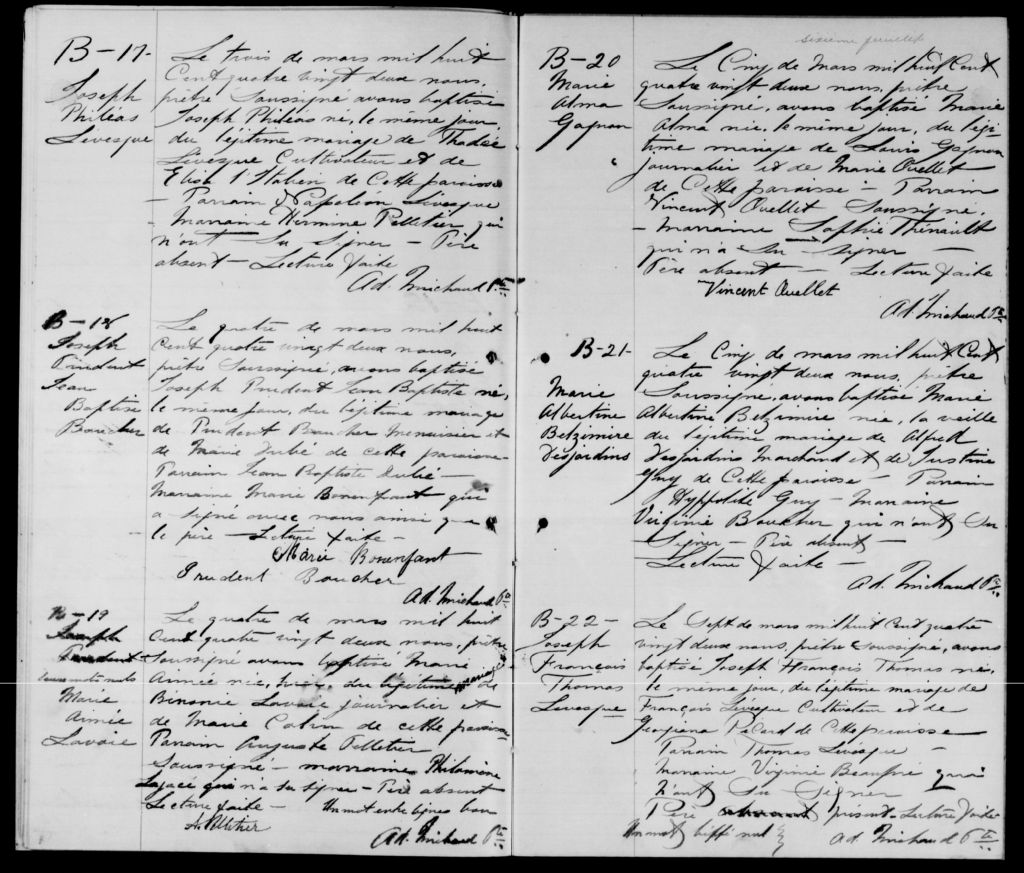 B-17-
Joseph
Phileas
Levesque
Le trois de mars mil huit
Cent quatre vingt deux nous,
prêtre Soussigné avons baptisé
Joseph Phileas né, le même jour,
du légitime mariage de Thadée
Lévesque Cultivateur et de
Elise l'Italien de Cette paroisse
- Parrain Napoléon Levesque
- Marraine Hermine Pelletier qui
n'ont Su Signer - Père
absent - Lecture faite
Ad. Michaud Ptre
B-18
Joseph
Prudent
Jean
Baptiste
Boucher
Le quatre de mars mil huit
Cent quatre vingt deux nous,
prêtre Soussigné, avons baptisé
Joseph Prudent Jean Baptiste né,
le même jour, du légitime mariage
de Prudent Boucher Menuisier et
de Marie Dubé de cette paroisse-
Parrain Jean Baptiste Dubé -
Marraine Marie Bonenfant qui
a signé avec nous ainsi que
le père - Lecture faite -
Marie Bonenfant
Prudent Boucher
Ad. Michaud Ptre
B-19
Joseph
Prudent
deux mots nuls
Marie
Aimée
Lavoie
Le quatre de mars mil huit
Cent quatre vingt deux nous, prêtre
Soussigné avons baptisé Marie
Aimée née, du légitime mariage de
Lavoie journalier et
de Marie de cette paroisse
Parrain Auguste Pelletier
Soussigné - marraine Philomène
Lajacé qui n'a su signer - Père absent
Lecture faite - Un mot entre lignes bon
A. Pelletier
Ad. Michaud Ptre
sixième feuillet
B-20
Marie
Alma
Gagnon
Le Cinq de Mars mil huit Cent
quatre vingt deux nous, prêtre
Soussigné, avons baptisé Marie
Alma née, le même jour, du légi-
time mariage de Louis Gagnon
journalier et de Marie Ouellet
de Cette paroisse - Parrain
Vincent Ouellet Soussigné,
- Marraine Sophie Thériault
qui n'a Su Signer -
Père absent - Lecture faite
Vincent Ouellet
Ad. Michaud Ptre
B-21-
Marie
Albertine
Belzimire
Desjardins
Le Cinq de mars mil huit Cent
quatre vingt deux nous, prêtre
Soussigné, avons baptisé Marie
Albertine Belzimire née, la veille
du légitime mariage de Alfred
Desjardins Marchand et de Justine
Guy de Cette paroisse - Parrain
Hyppolite Guy - Marraine
Virginie Boucher qui n'ont Su
Signer - Père absent -
Lecture faite -
Ad. Michaud Ptre
B-22-
Joseph
François
Thomas
Levesque
Le Sept de mars mil huit Cent quatre
vingt deux nous, prêtre Soussigné, avons
baptisé Joseph François Thomas né,
le même jour, du légitime mariage de
François Levesque Cultivateur et de
Georgiana Picard de Cette paroisse
Parrain Thomas Levesque -
Marraine Virginie Beaupré qui
N'ont Su Signer
Père absent présent - Lecture faite
Un mot biffé nul
Ad. Michaud Ptre